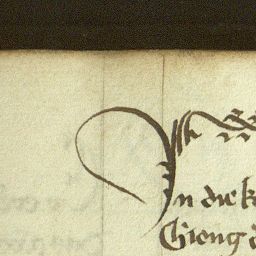 In die k
Gieng d